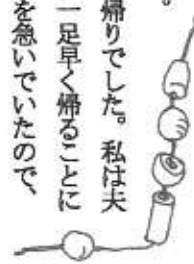 。
帰りでした。私は夫
一足早く帰ることに
を急いでいたので、